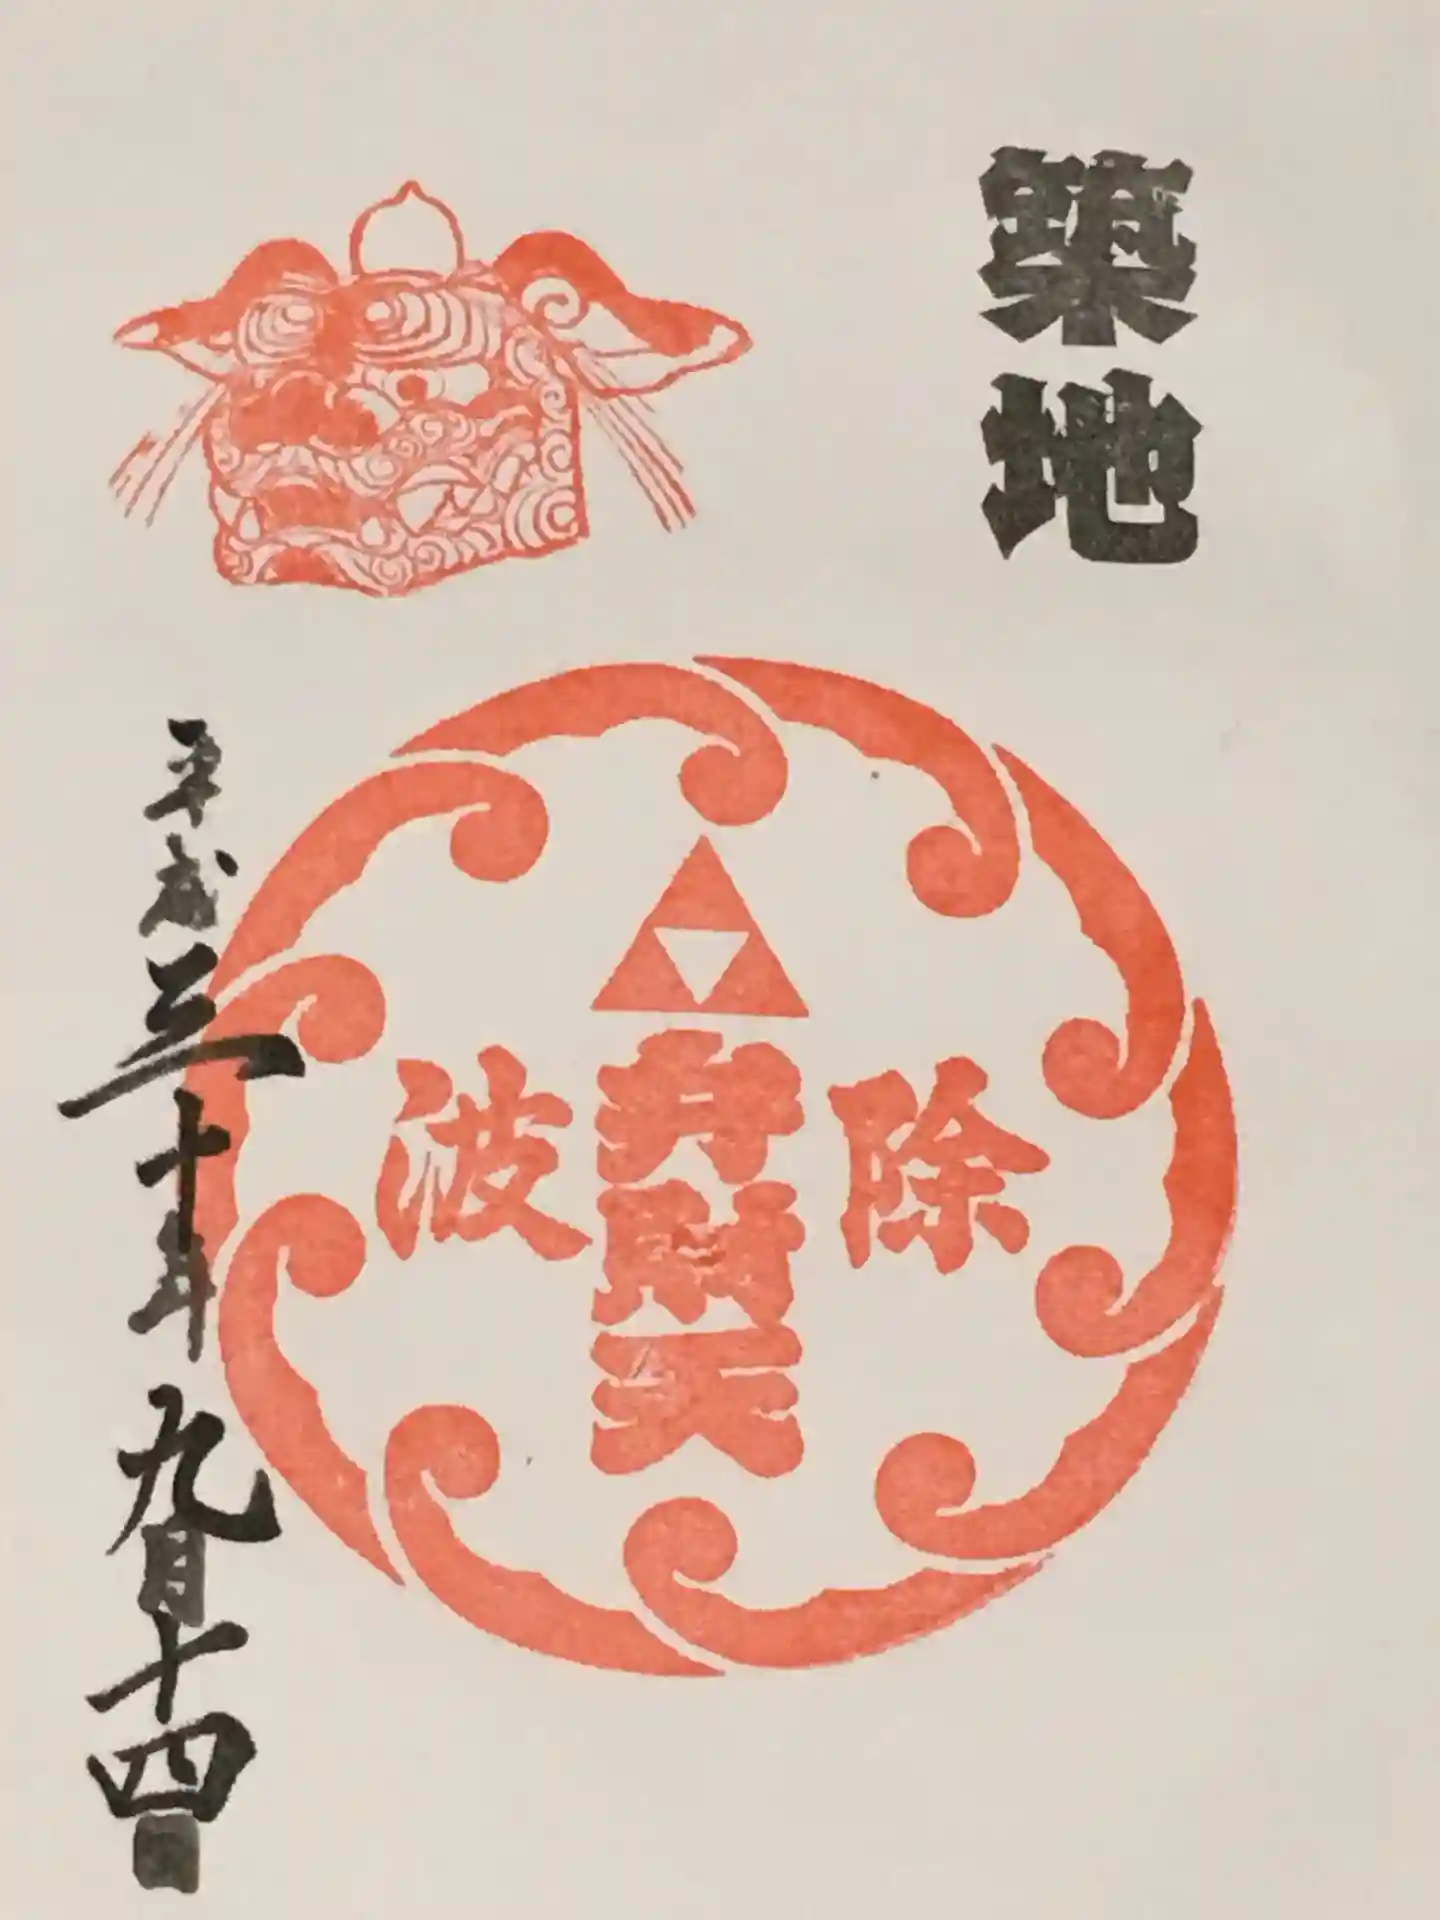 築地
除 弁財天 波
平成三十年九月十四日